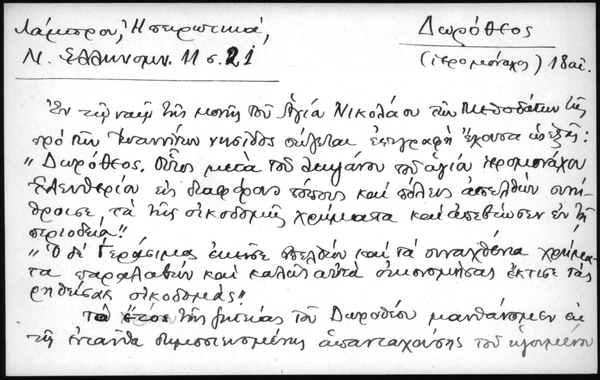 Λάμπρου, Ἠπειρωτικά,
Ν. Ἑλληνομν. 11 σ. 21
Δωρόθεος
(ἱερομόναχος) 18 αἰ.
Ἐν τῷ ναῷ τῆς μονῆς τοῦ Ἁγίου Νικολάου τῶν τῆς
πρὸ τῶν Ἰωαννίνων νησῖδος σῴζεται ἐπιγραφὴ ἔχουσα ὡς ἑξῆς:
"Δωρόθεος. Οὗτος μετὰ τοῦ λειψάνου τοῦ ἁγίου ἱερομονάχου
Ἐλευθερίου εἰς διαφόρους τόπους καὶ πόλεις ἀπελθὼν συνή-
θροισε τὰ τῆς οἰκοδομῆς χρήματα καὶ ἀπεβίωσεν ἐν τῇ
περιοδείᾳ".
"Ὁ δὲ Γεράσιμος ἐκεῖσε ἀπελθὼν καὶ τὰ συναχθέντα χρήμα-
τα παραλαβὼν καὶ καλῶς αὐτὰ οἰκονομήσας ἔκτισε τὰς
ῥηθείσας οἰκοδομάς".
Τὸ ἔτος τῆς ζητείας τοῦ Δωροθέου μανθάνομεν ἐκ
τῆς ἐνταῦθα δημοσιευομένης ἀπανταχούσης τοῦ ἡγουμένου